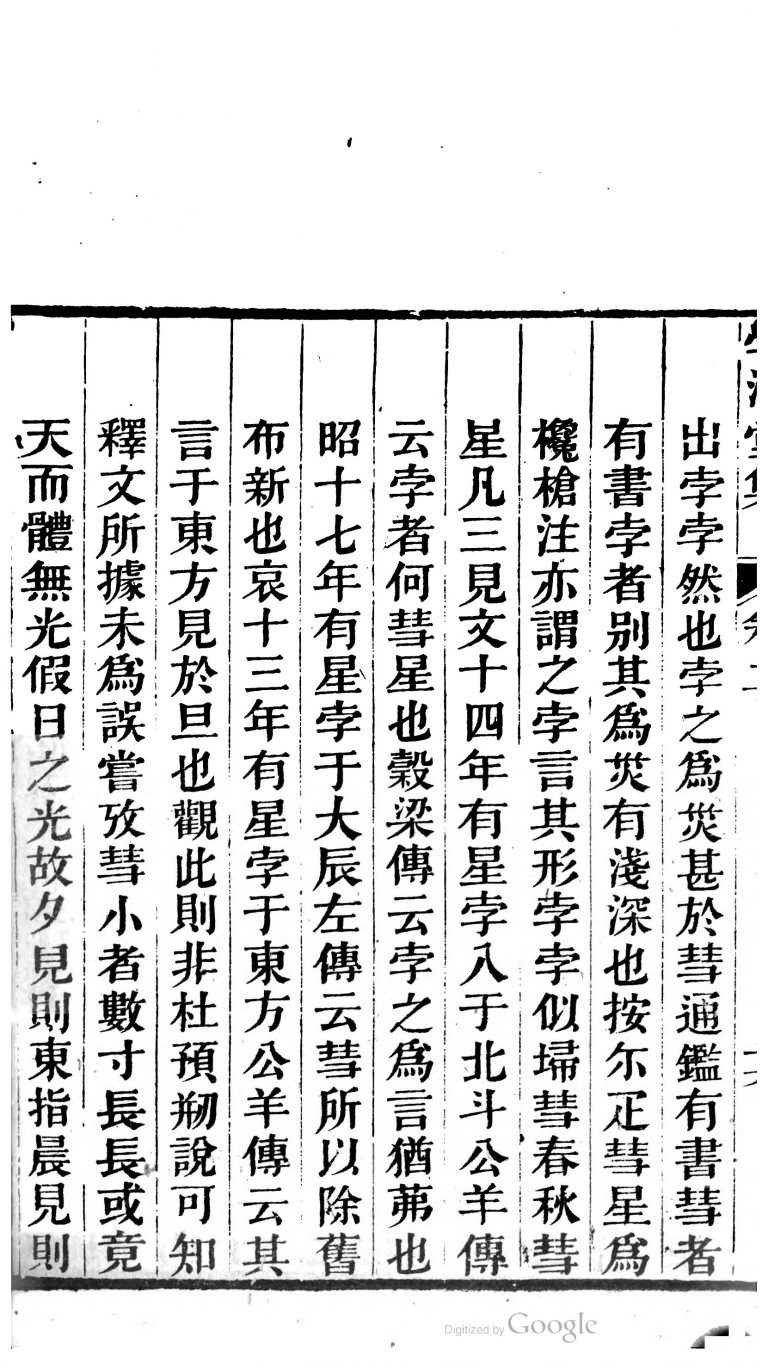 出孛孛然也孛之爲災甚於彗通鑑有書彗者
有書孛者別其爲災有淺深也按尒疋彗星爲
欃槍注亦謂之孛言其形孛孛似埽彗春秋彗
星凡三見文十四年有星孛入于北斗公羊傳
云孛者何彗星也穀梁傳云孛之爲言猶茀也
昭十七年有星孛于大辰左傳云彗所以除舊
布新也哀十三年有星孛于東方公羊傳云其
言于東方見於旦也觀此則非杜預剏說可知
釋文所據未爲誤嘗攷彗小者數寸長長或竟
天而體無光假日之光故夕見則東指晨見則
Digitized by Google